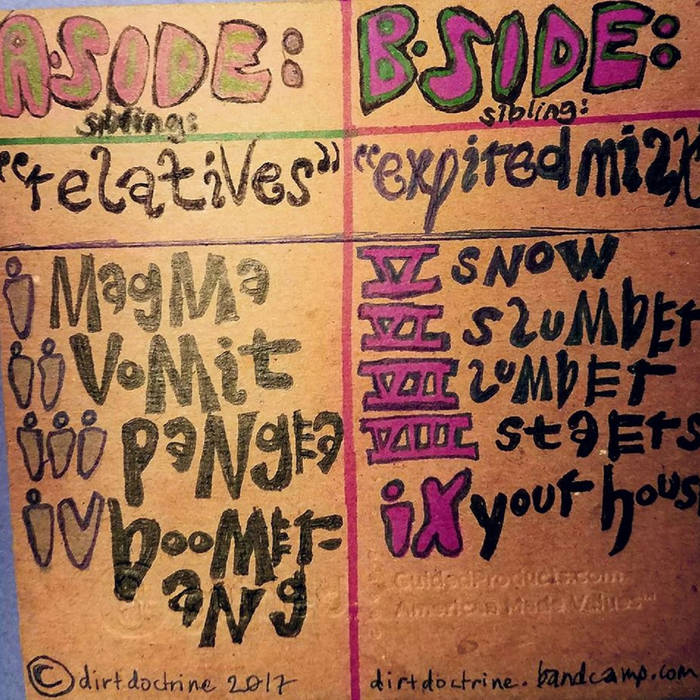 A·SIDE:
sibling:
"relatives"
i MagMa
ii VoMit
iii PaNgEa
iV booMEr-
aNg
© dirtdoctrine 2017
B·SIDE:
sibling:
"expired milk
V SNOW
VI SlUMbEr
VII lUMbEr
VIII staErs
iX your hous
GuidedProducts.com
American Made Values™
dirtdoctrine.bandcamp.com